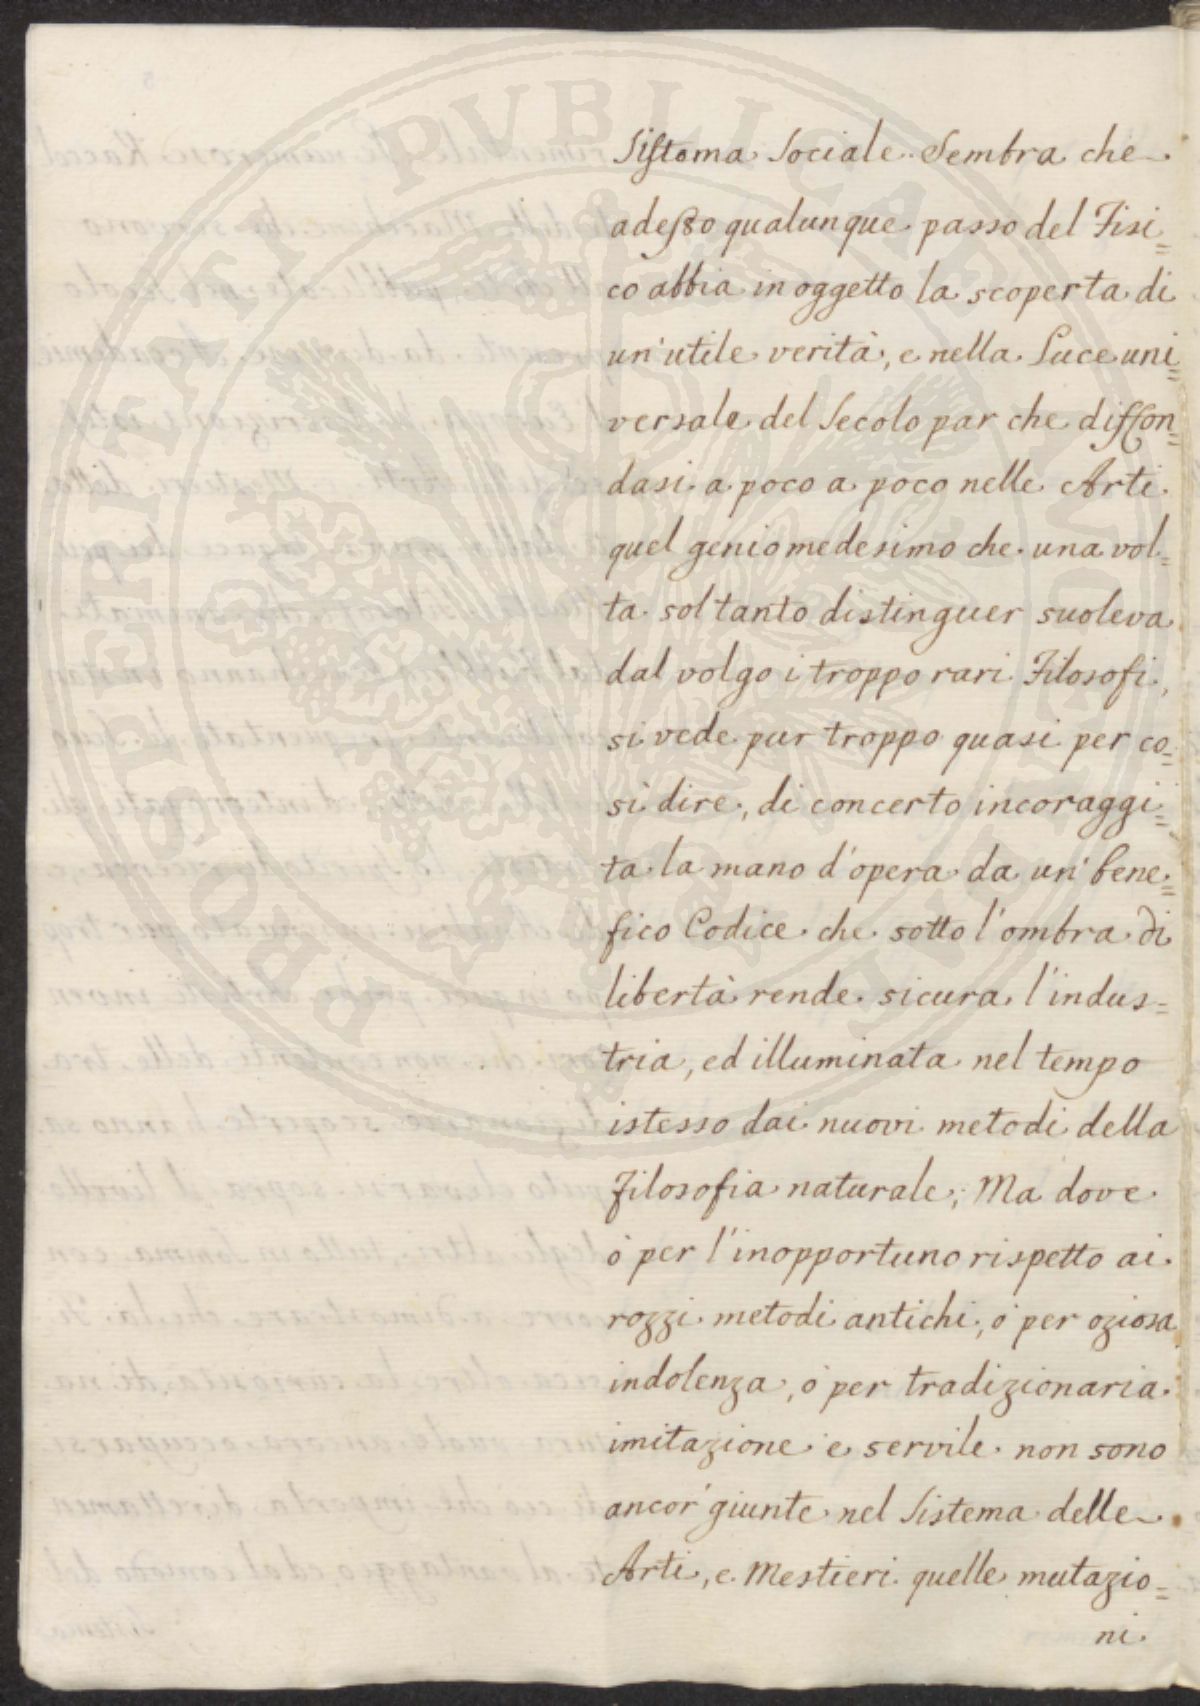 Sistema Sociale. Sembra che
adesso qualunque passo del Fisi=
co abbia in oggetto la scoperta di
un'utile verità, e nella Luce uni=
versale del Secolo par che diffon=
dasi a poco a poco nelle Arti
quel genio medesimo che una vol=
ta soltanto distinguer suoleva
dal volgo i troppo rari Filosofi,
si vede pur troppo quasi per co=
sì dire, di concerto incoraggi=
ta la mano d'opera da un' bene=
fico Codice che sotto l'ombra di
libertà rende sicura l'indus=
tria, ed illuminata nel tempo
istesso dai nuovi metodi della
Filosofia naturale; Ma dove
ò per l'inopportuno rispetto ai
rozzi metodi antichi, ò per oziosa
indolenza, ò per tradizionaria
imitazione e servile non sono
ancor' giunte nel Sistema delle
Arti, e Mestieri quelle mutazio=
ni
PROSPERITATI PVBLICAE AVGENDAE